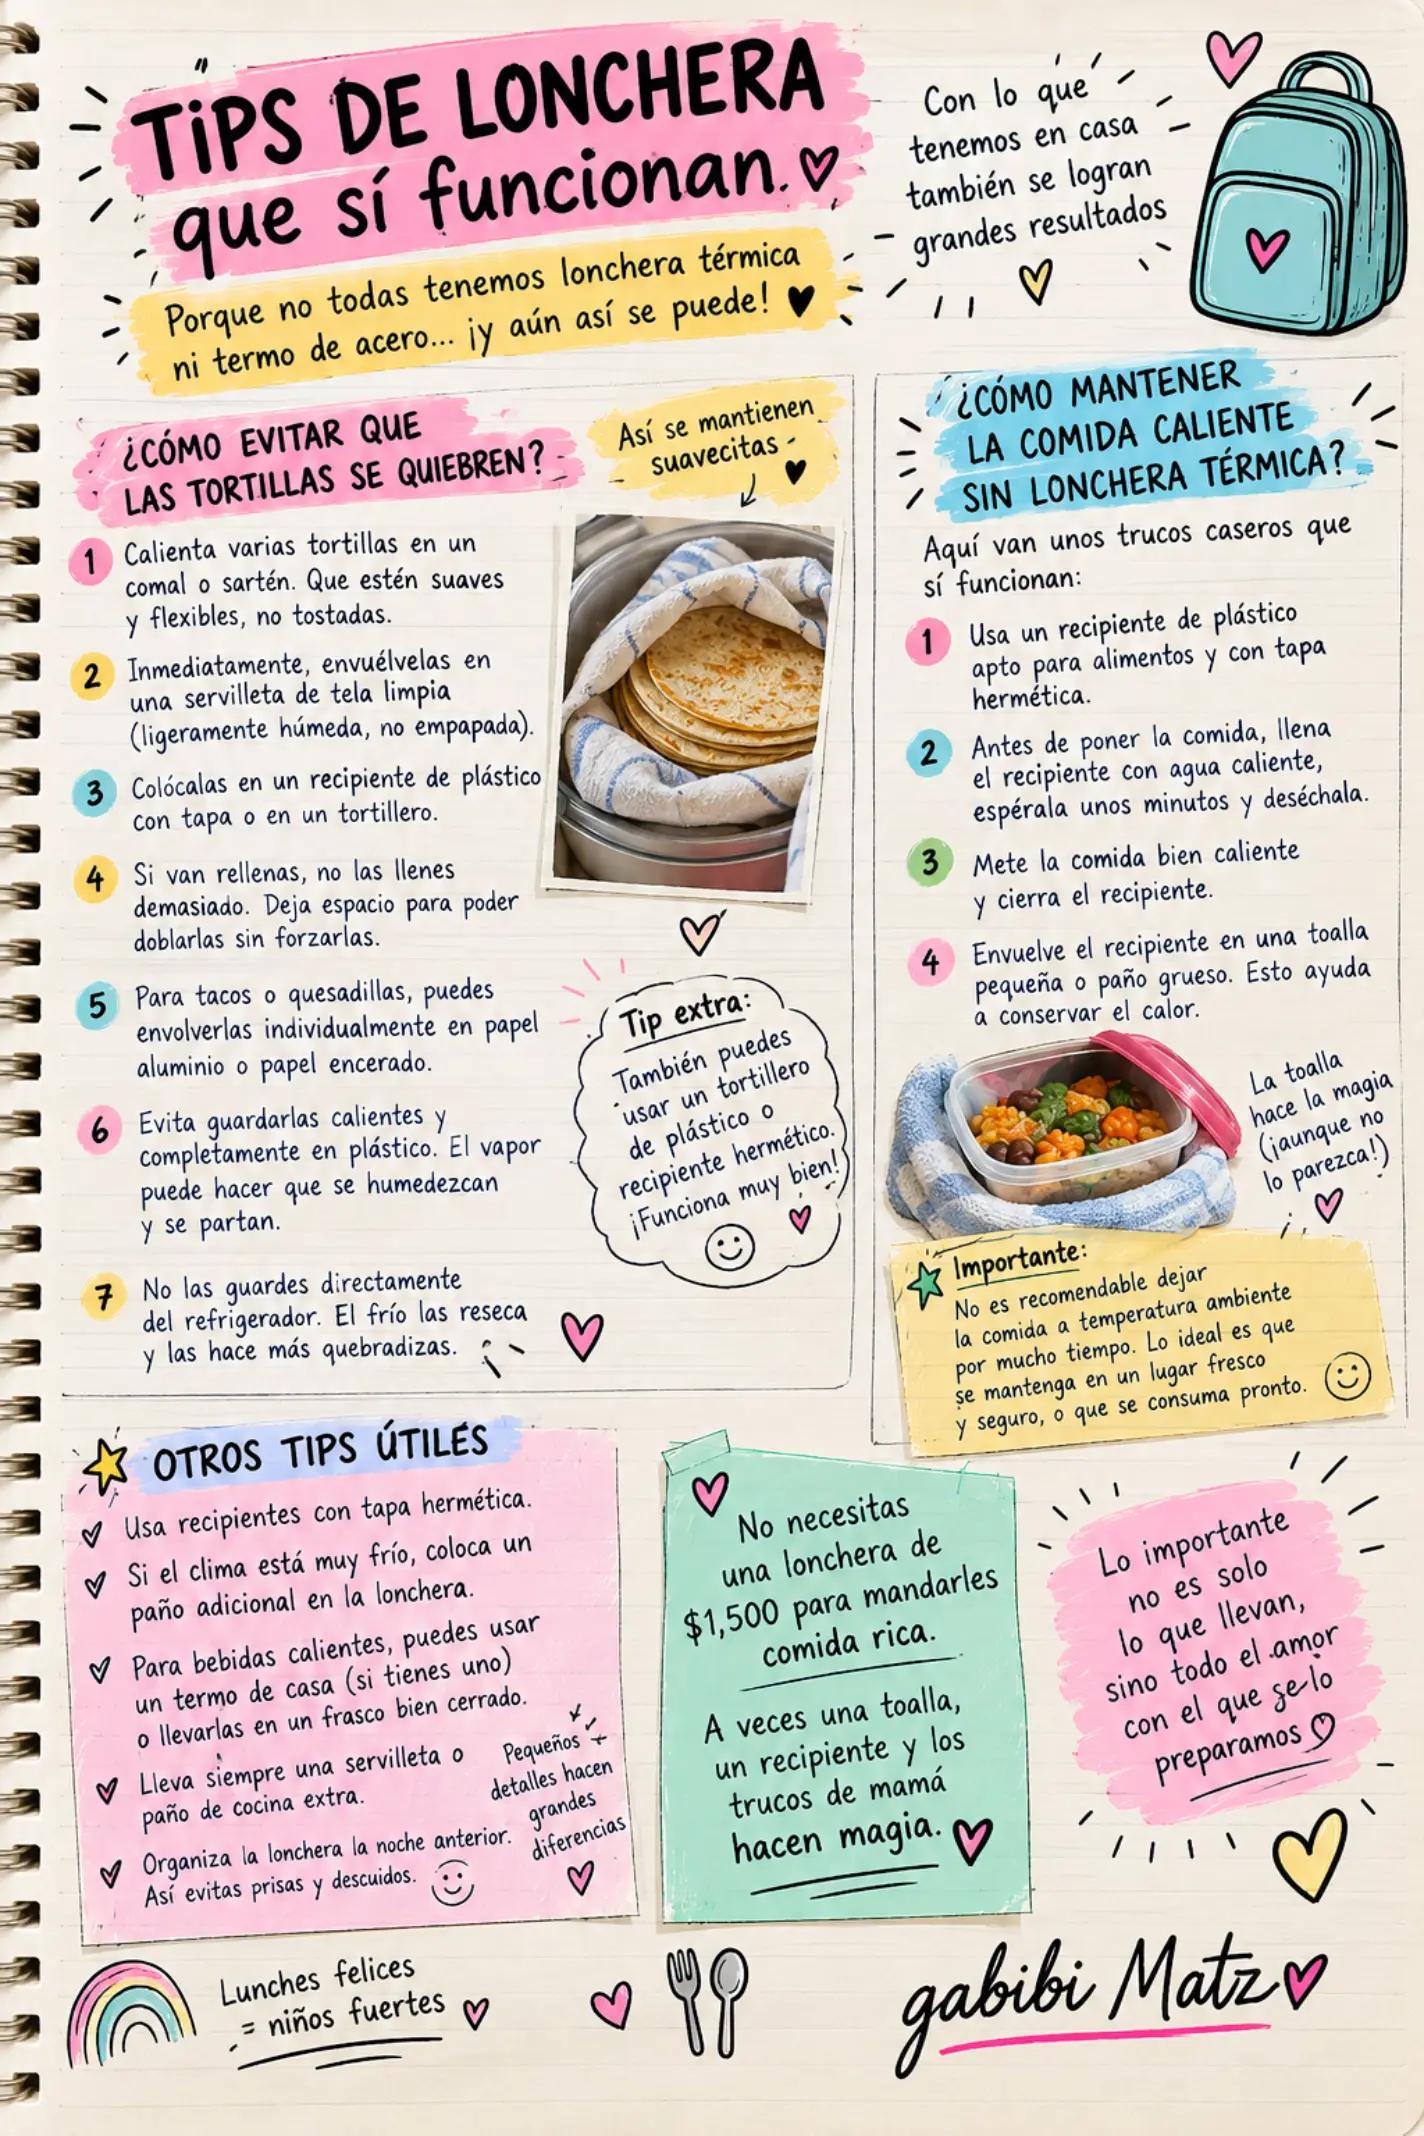 TiPS DE LONCHERA
que sí funcionan.
Porque no todas tenemos lonchera térmica
ni termo de acero... ¡y aún así se puede!
Con lo que
tenemos en casa
también se logran
grandes resultados
¿CÓMO EVITAR QUE
LAS TORTILLAS SE QUIEBREN?
Así se mantienen
suavecitas
1 Calienta varias tortillas en un
comal o sartén. Que estén suaves
y flexibles, no tostadas.
2 Inmediatamente, envuélvelas en
una servilleta de tela limpia
(ligeramente húmeda, no empapada).
3 Colócalas en un recipiente de plástico
con tapa o en un tortillero.
4 Si van rellenas, no las llenes
demasiado. Deja espacio para poder
doblarlas sin forzarlas.
5 Para tacos o quesadillas, puedes
envolverlas individualmente en papel
aluminio o papel encerado.
6 Evita guardarlas calientes y
completamente en plástico. El vapor
puede hacer que se humedezcan
y se partan.
7 No las guardes directamente
del refrigerador. El frío las reseca
y las hace más quebradizas.
Tip extra:
También puedes
usar un tortillero
de plástico o
recipiente hermético.
¡Funciona muy bien!
¿CÓMO MANTENER
LA COMIDA CALIENTE
SIN LONCHERA TÉRMICA?
Aquí van unos trucos caseros que
sí funcionan:
1 Usa un recipiente de plástico
apto para alimentos y con tapa
hermética.
2 Antes de poner la comida, llena
el recipiente con agua caliente,
espérala unos minutos y deséchala.
3 Mete la comida bien caliente
y cierra el recipiente.
4 Envuelve el recipiente en una toalla
pequeña o paño grueso. Esto ayuda
a conservar el calor.
La toalla
hace la magia
(¡aunque no
lo parezca!)
Importante:
No es recomendable dejar
la comida a temperatura ambiente
por mucho tiempo. Lo ideal es que
se mantenga en un lugar fresco
y seguro, o que se consuma pronto.
OTROS TIPS ÚTILES
Usa recipientes con tapa hermética.
Si el clima está muy frío, coloca un
paño adicional en la lonchera.
Para bebidas calientes, puedes usar
un termo de casa (si tienes uno)
o llevarlas en un frasco bien cerrado.
Lleva siempre una servilleta o
paño de cocina extra.
Organiza la lonchera la noche anterior.
Así evitas prisas y descuidos.
Pequeños
detalles hacen
grandes
diferencias
No necesitas
una lonchera de
$1,500 para mandarles
comida rica.
A veces una toalla,
un recipiente y los
trucos de mamá
hacen magia.
Lo importante
no es solo
lo que llevan,
sino todo el amor
con el que se lo
preparamos
Lunches felices
= niños fuertes
gabibi Matz